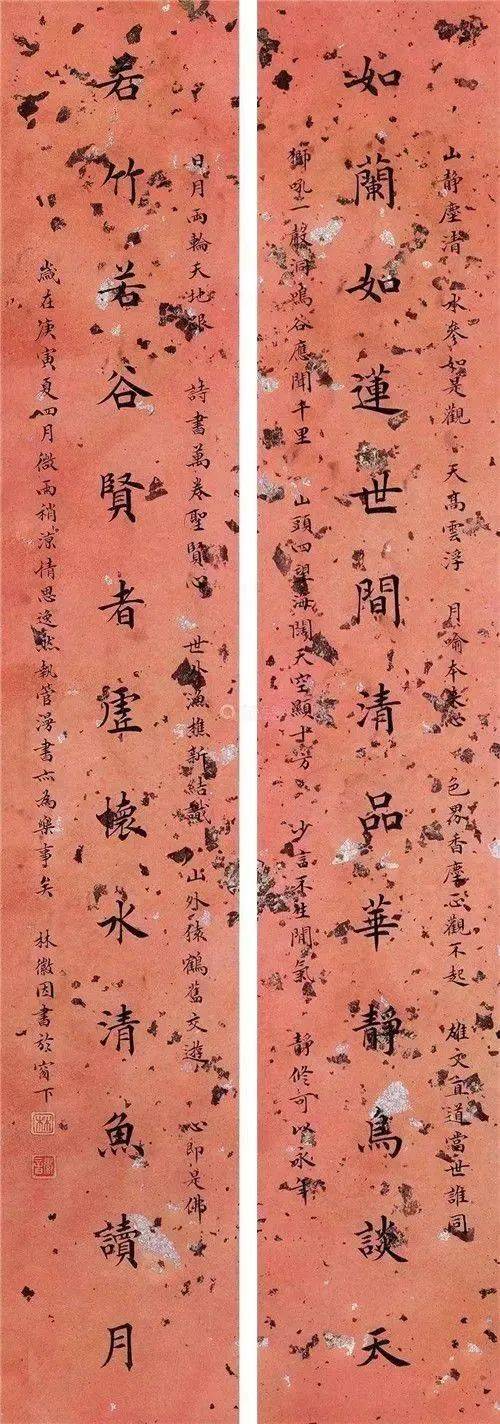 山静塵清 水參如是觀 天高雲浮 月喻本来心 色界香塵心觀不起 雄文直道當世誰同
如蘭如蓮世間清品華靜鳥談天
獅吼一聲洞鳴谷應聞千里 山頭四望海闊天空顯十方 少言不生閒氣 静修可以永年
日月兩輪天地眼 詩書萬卷聖賢心 世外漁樵新結識 山外猿鶴舊交遊 心即是佛
若竹若谷賢者虛懷水清魚讀月
歲在庚寅夏四月微雨稍涼情思逸然執管漫書亦為樂事矣 林徽因書於窗下